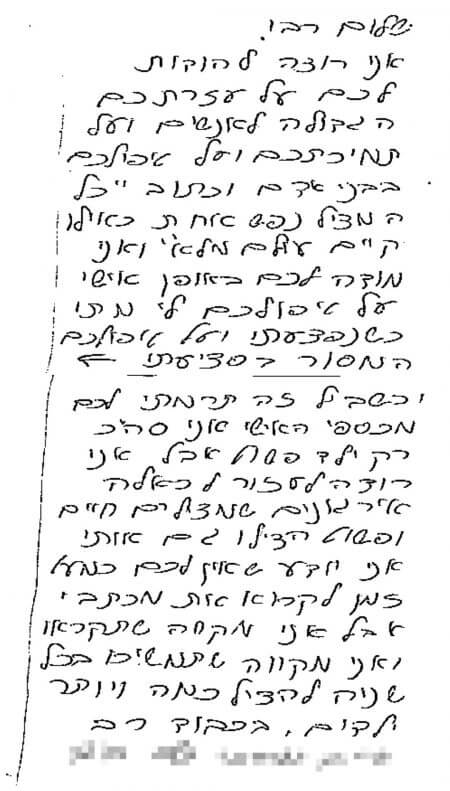 שלום רבי.
אני רוצה להודות
לכם על עזרתכם
הגדולה לאנשים ועל
תמיכתכם ועל טיפולכם
בבני אדם וכתוב "כל
המציל נפש אחת כאילו
קיים עולם מלא" ואני
מודה לכם באופן אישי
על טיפולכם לי מתי
כשנפצעתי ועל טיפולכם
המסור בפציעתי ←
וכשביל זה תרמתי לכם
מכספי האישי אני סה"כ
רק ילד פשוט אבל אני
רוצה לעזור לכאלה
אירגונים שמצילים חיים
ופשוט הצילו גם אותי
אני יודע שאין לכם כמעט
זמן לקרוא את מכתבי
אבל אני מקווה שתקראו
ואני מקווה שתמשיכו בכל
שניה להציל כמה ויותר
ילדים, בכבוד רב